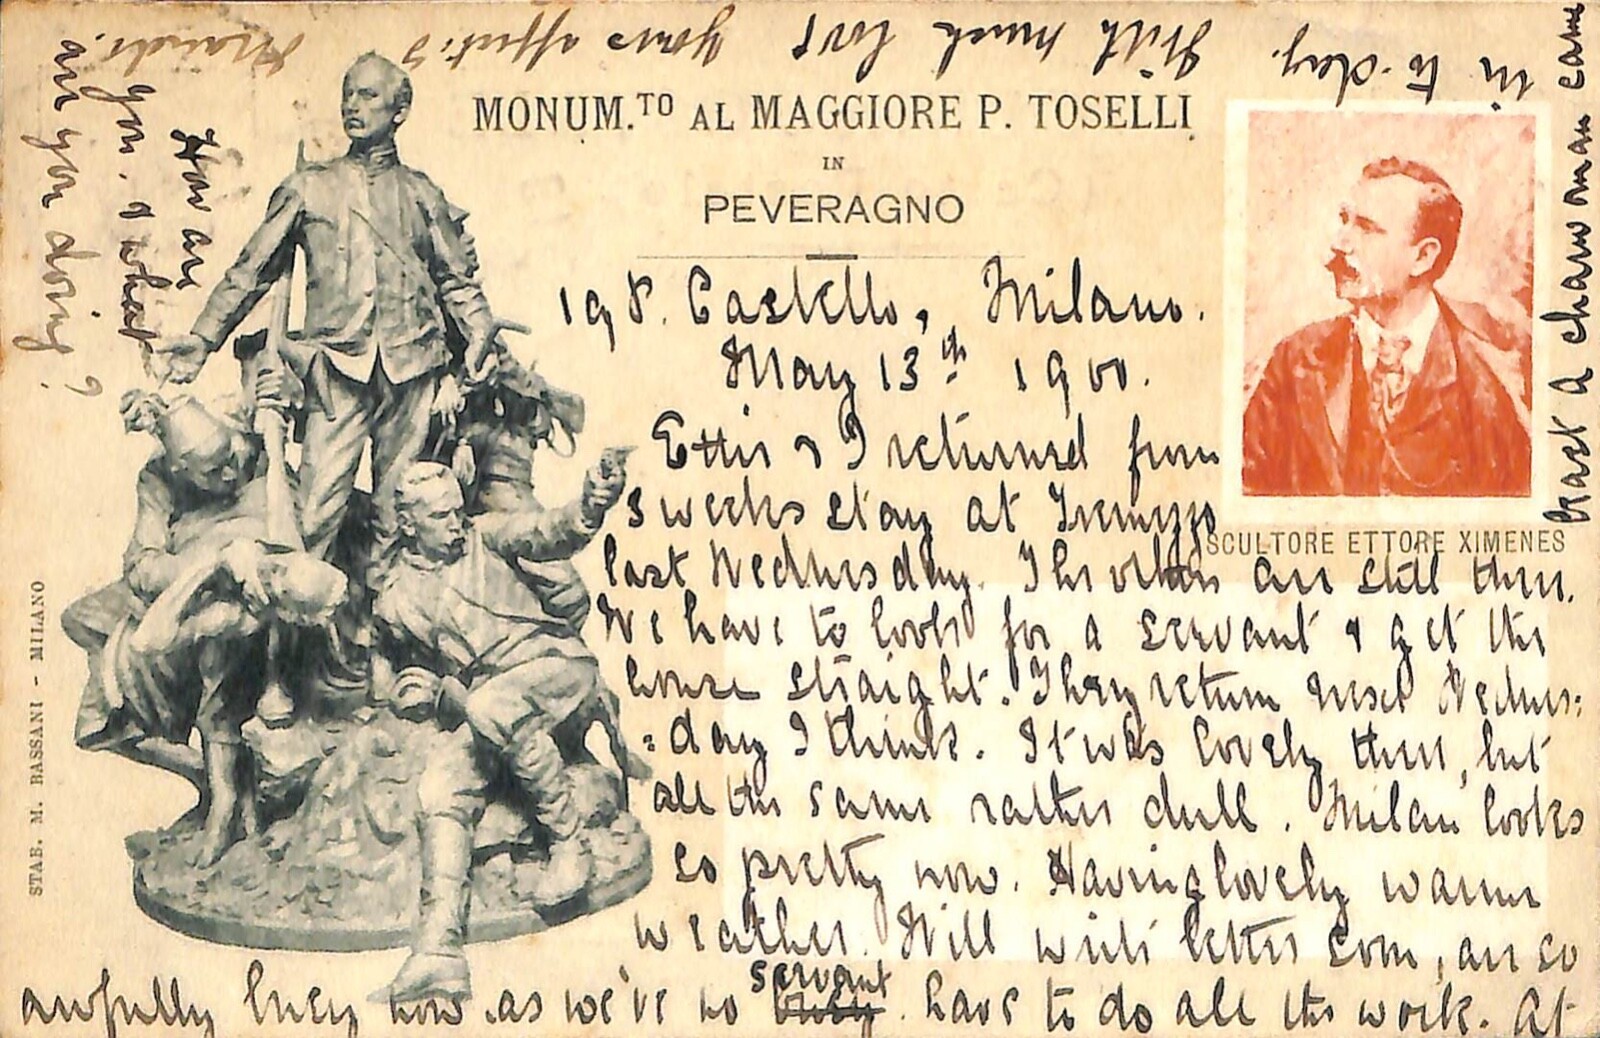 MONUM.TO AL MAGGIORE P. TOSELLI
IN
PEVERAGNO
SCULTORE ETTORE XIMENES
STAB. M. BASSANI - MILANO
19 P. Castello, Milano.
May 13th 1900.
Ettie & I returned from
3 weeks stay at Tremezzo
last Wednesday. The others are still there.
We have to look for a servant & get the
house straight. They return next Wednes:
:day I think. It was lovely there, but
all the same rather dull. Milan looks
so pretty now. Having lovely warm
weather. Will write letter soon, am so
awfully busy now as we've no servant have to do all the work. At
least a charwoman came
in to-day. With much love yours affect:
How are
you. & what
are you doing?